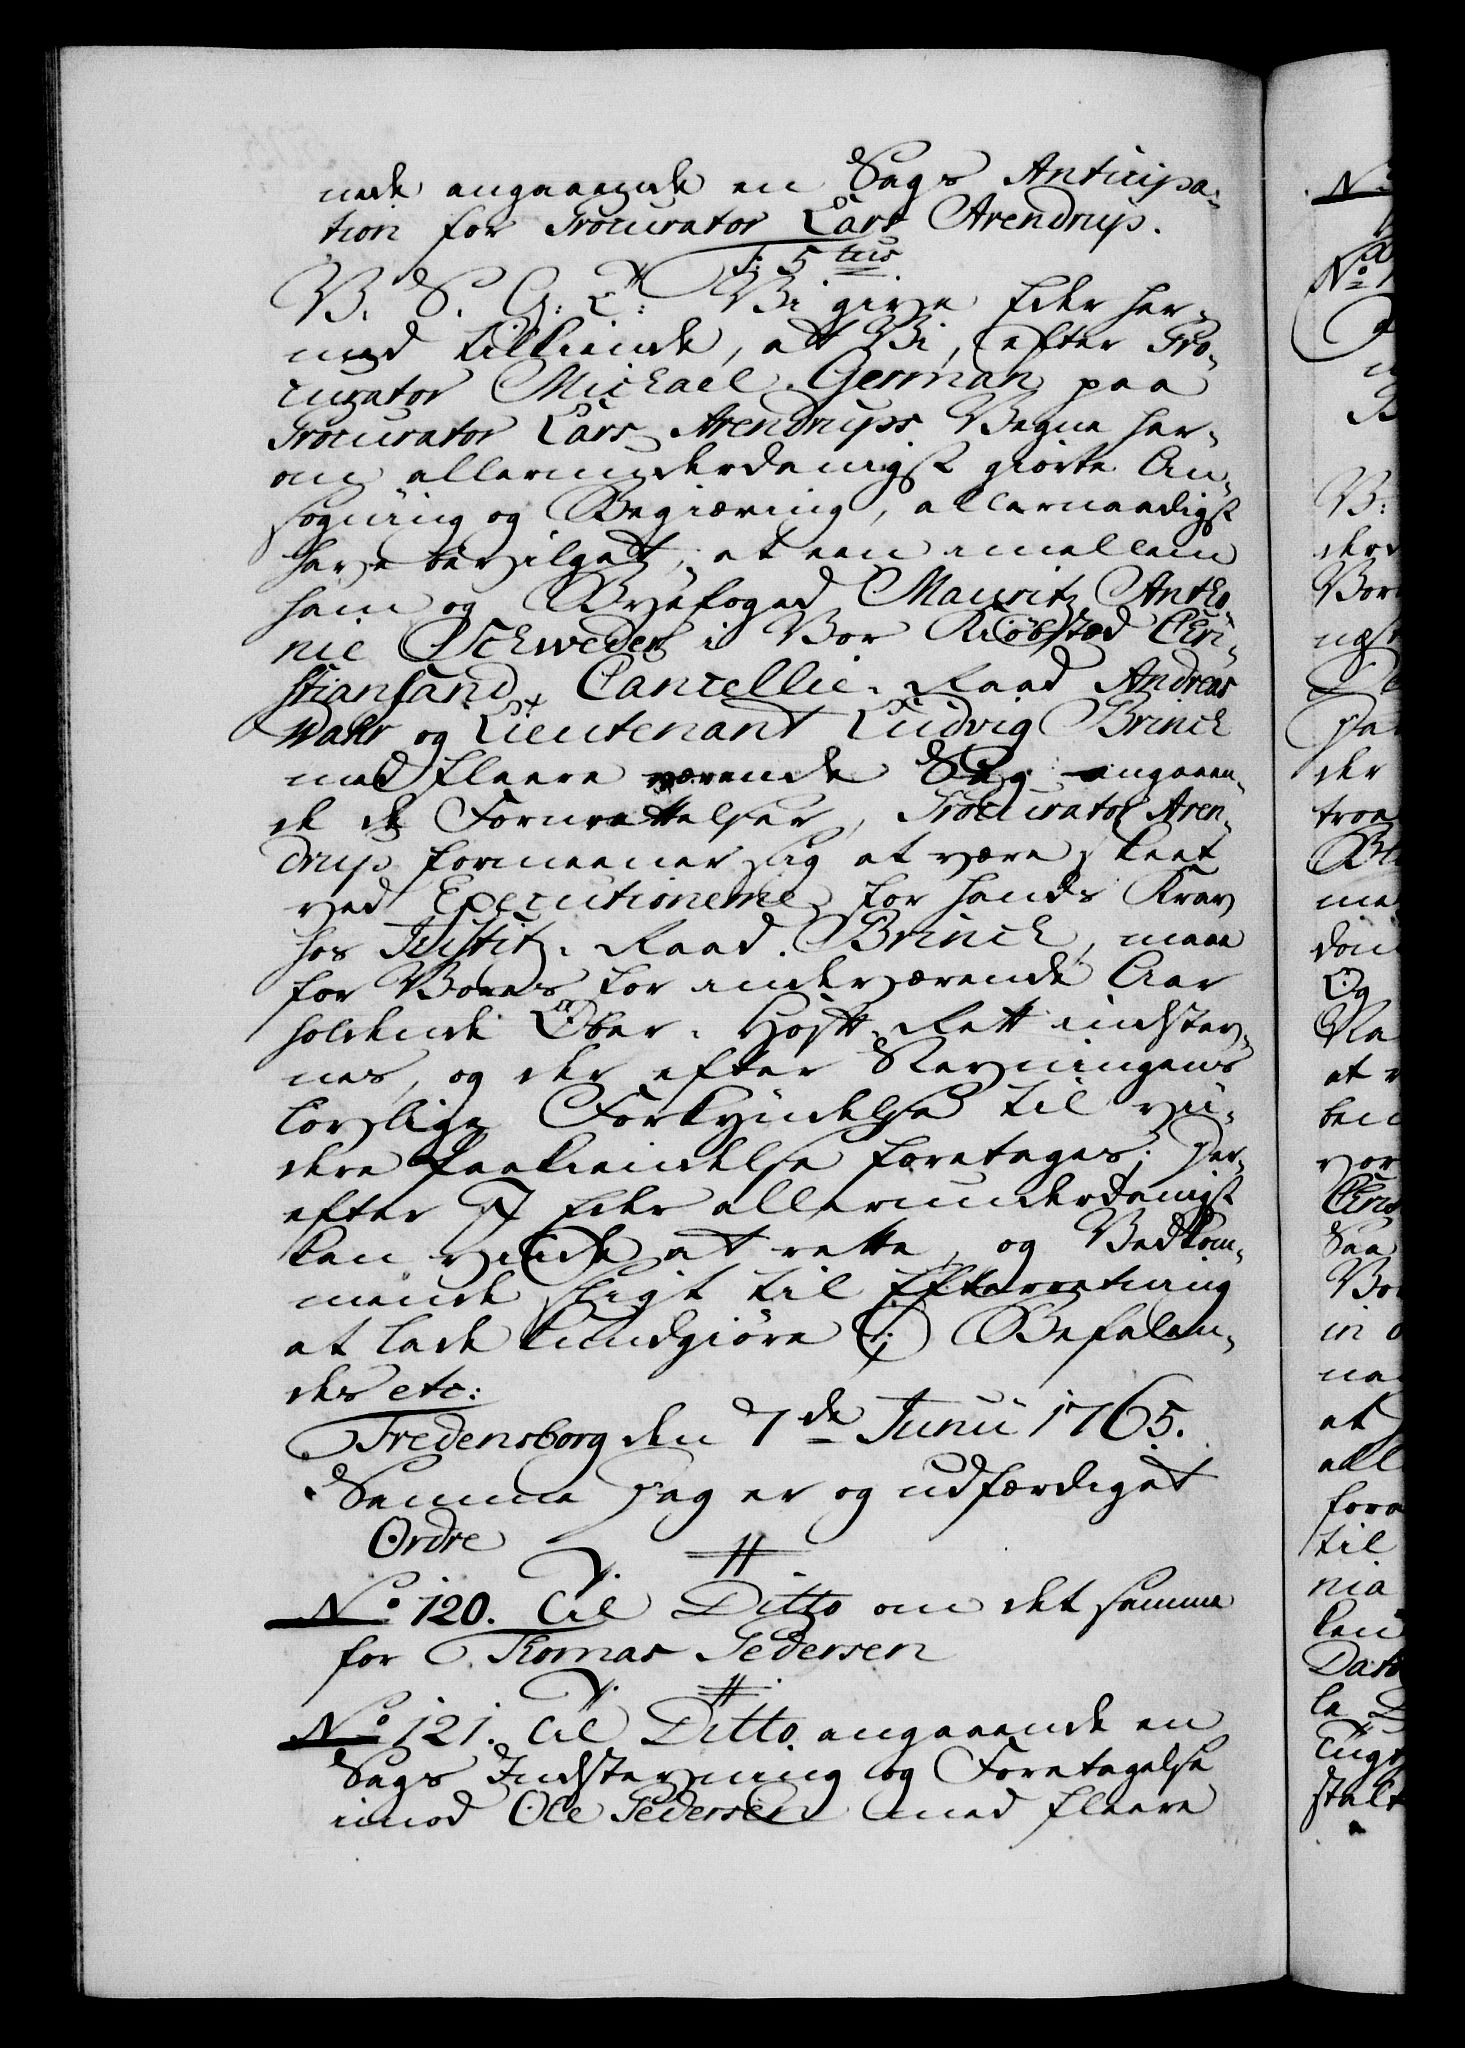 nede angaaende en Sags Anticipa-
tion for Procurator Lars Arendrup.
F: 5tus
V. S. G: T: Vi give Eder her-
med tilkiende, at Vi, efter Pro-
curator Michael German paa
Procurator Lars Arendrups Vegne her-
om allerunderdanigst giorte An-
søgning og Begiæring, allernaadigst
have bevilget, at een imellem
ham og Byefoged Mauritz Antho-
nie Schweder i Vor Kiøbstæd Chri-
stiansand, Cancellie-Raad Andreas
Wahr og Lieutenant Ludvig Brinck
med fleere værende Sag angaaen-
de de Fornættelser, Procurator Aren-
drup formeener sig at være skeet
ved Executionerne for hands Krav
hos Justitz-Raad Brinck, maae
for Vores for indeværende Aar
holdende Ober-Hof-Rett indstev-
nes, og der efter Stevningens
lovlige Forkyndelse til vii-
dere Paakiendelse foretages; Her-
efter I Eder allerunderdanigst
kan vide at rette, og Vedkom-
mende sligt til Efterretning
at lade kundgiøre. Befalen-
des etc:
Fredensborg den 7de Junii 1765.
Samme Dag er og udfærdiget
Ordre
No 120. Til Ditto om det samme
for Thomas Pedersen
No 121. Til Ditto angaaende en
Sags Indstevning og Foretagelse
imod Ole Pedersen med fleere